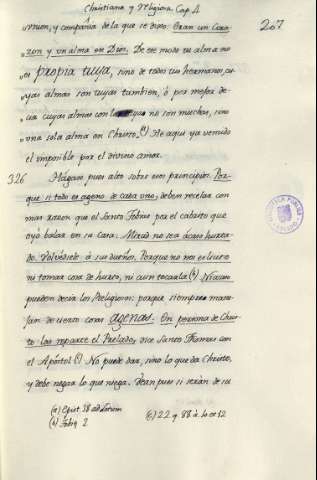 Christiana y Religiosa Cap. 4
207
mun, y compañia de la que se dixo: Eran un Cora-
zon y un alma en Dios. De ese modo tu alma no
es propia tuya, sino de todos tus hermanos, cu-
yas almas son tuyas tambien, ó por mejor de-
cir tuyas almas con las no son muchas, sino
una sola alma en Christo. (a) He aqui ya venido
el imposible por el divino amor.
326
Hagase pues alto sobre este principio: Por-
que si todo es ageno de cada uno, deben recelar con
mas razon que el Santo Tobias por el cabrito que
oyó balar en su casa. Mirad no sea ácaso hurta-
do. Volvedsele á sus dueños. Porque no nos es licito
ni tomar cosa de hurto, ni aun tocarla (b)
pueden decir los Religiosos: porque siempre mane-
jan de cosas agenas. En persona de Chris-
to las reparte el Prelado, dice Santo Thomas con
el Apóstol (c) No puede dar, sino lo que da Christo,
y debe negar lo que niega. Vean pues si serán de su
(a) Epist. 38 ad
(b) Tobię 2
(c) 2.2 q. 88 á. 12